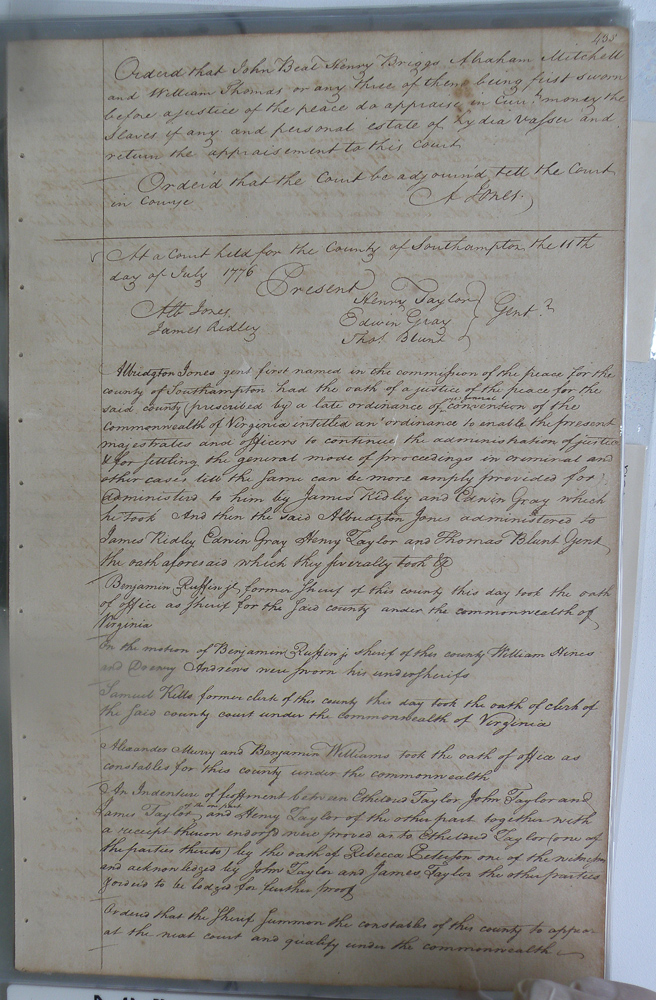 Orderd that John Beal Henry Briggs Abraham Mitchell
and William Thomas or any three of them being first sworn
before a justice of the peace do appraise in Curr.t money the
slaves if any and personal estate of Lydia Vasser and
return the appraisement to this Court
Order'd that the Court be adjourn'd till the Court
in Course
A Jones.
At a Court held for the County of Southampton the 11th
day of July 1776
Present
Alb Jones
James Ridley
Henry Taylor
Edwin Gray
Thos. Blunt
Gent.
Albridgton Jones gent first named in the commission of the peace for the
county of Southampton had the oath of a justice of the peace for the
said county (prescribed by a late ordinance of general convension of the
commonwealth of Virginia intitled an ordinance to enable the present
majestrates and officers to continue the administration of justice
& for settling the general mode of proceedings in criminal and
other cases till the same can be more amply provided for)
administerd to him by James Ridley and Edwin Gray which
he took And then the said Albridgton Jones administered to
James Ridley Edwin Gray Henry Taylor and Thomas Blunt Gent
the oath aforesaid which they severally took &c
Benjamin Ruffin jr. former Sherif of this county this day took the oath
of office as Sherif for the said county under the commonwealth of
Virginia
On the motion of Benjamin Ruffin jr sherif of this county William Hines
and Drewry Andrews were sworn his undersherifs
Samuel Kello former clerk of this county this day took the oath of clerk of
the said county court under the commonwealth of Virginia
Alexander Murry and Benjamin Williams took the oath of office as
constables for this county under the commonwealth
An Indenture of feoffment between Etheldred Taylor John Taylor and
James Taylor of the one part and Henry Taylor of the other part together with
a receipt thereon endors'd were proved as to Etheldred Taylor (one of
the parties thereto) by the oath of Rebecca Peterson one of the witnesses
and acknowledged by John Taylor and James Taylor the other parties
& orderd to be lodged for further proof
Orderd that the Sherif summon the constables of this county to appear
at the next court and qualify under the commonwealth